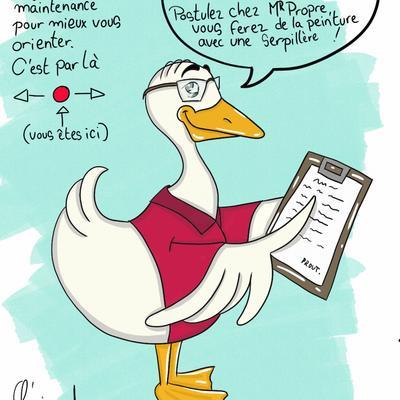 maintenance
pour mieux vous
orienter.
C'est par là
(vous êtes ici)
Postulez chez Mr Propre,
vous ferez de la peinture
avec une serpillère !
PROUT.